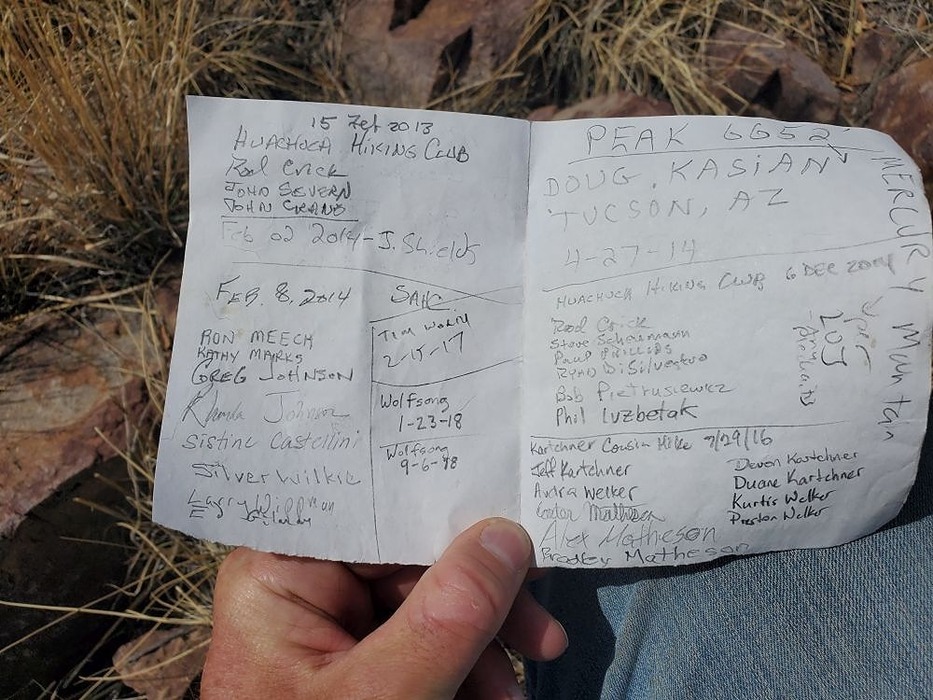 15 Feb 2013
HUACHUCA HIKING CLUB
Rod Crick
JOHN SEVERN
JOHN
Feb 02 2014 - J. Shields
FEB. 8, 2014
RON MEECH
KATHY MARKS
GREG JOHNSON
Johnson
Sistine Castellini
Silver Wilkie
Larry
SAHC
TIM
2-15-17
Wolfsong
1-23-18
Wolfsong
9-6-18
PEAK 6652'
DOUG. KASIAN
TUCSON, AZ
4-27-14
HUACHUCA HIKING CLUB 6 DEC 2014
Rod Crick
Steve
PAUL PHILLIPS
RYAN DiSilvestro
Bob Pietrusiewicz
Phil Luzbetak
Kartchner Cousin Hike 7/29/16
Jeff Kartchner
Andra Welker
Matheson
Alex Matheson
Bradley Matheson
Devon Kartchner
Duane Kartchner
Kurtis Welker
Preston Welker
MERCURY Muntain